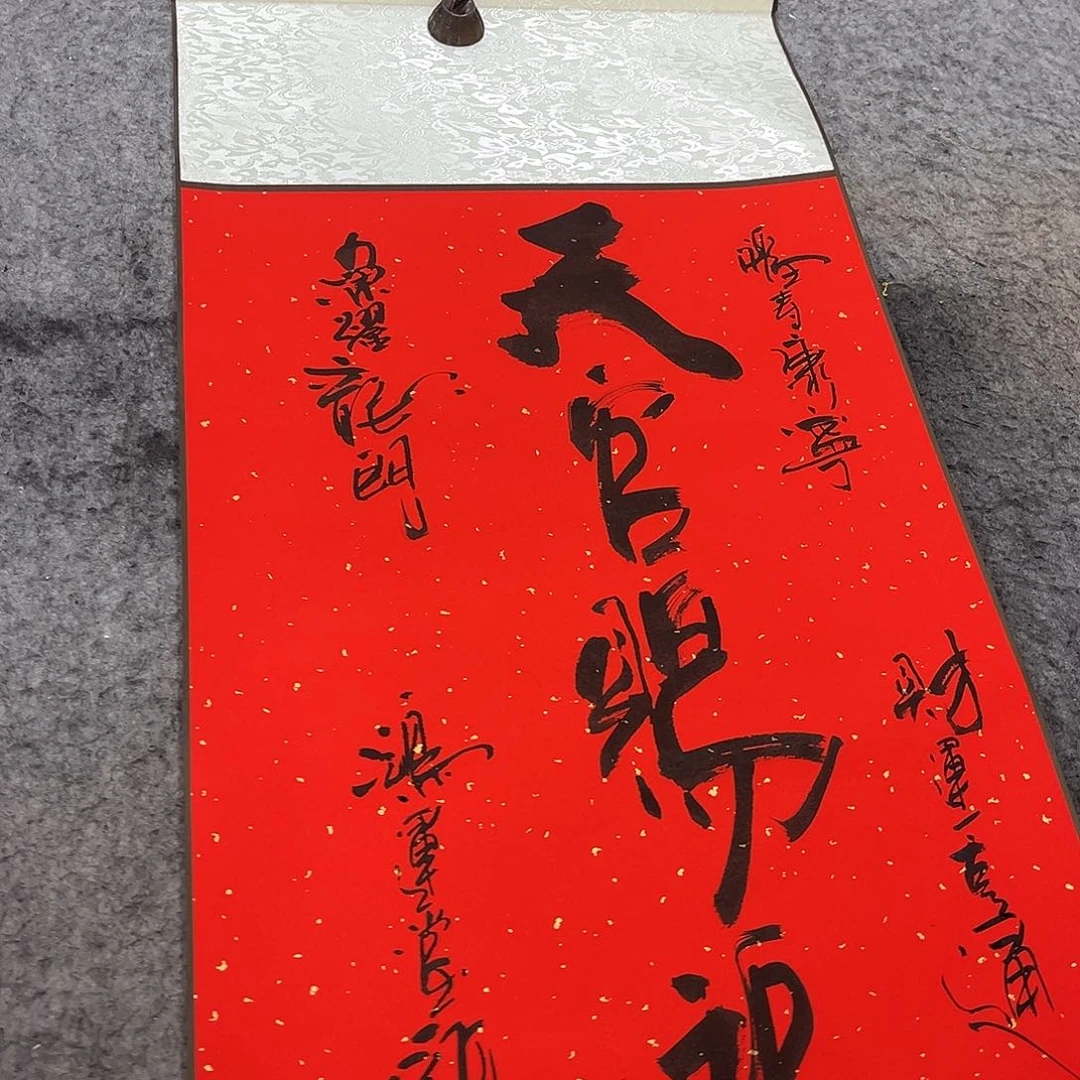 壽康寧
財運亨通
天官賜福
榮耀龍門
鴻運當